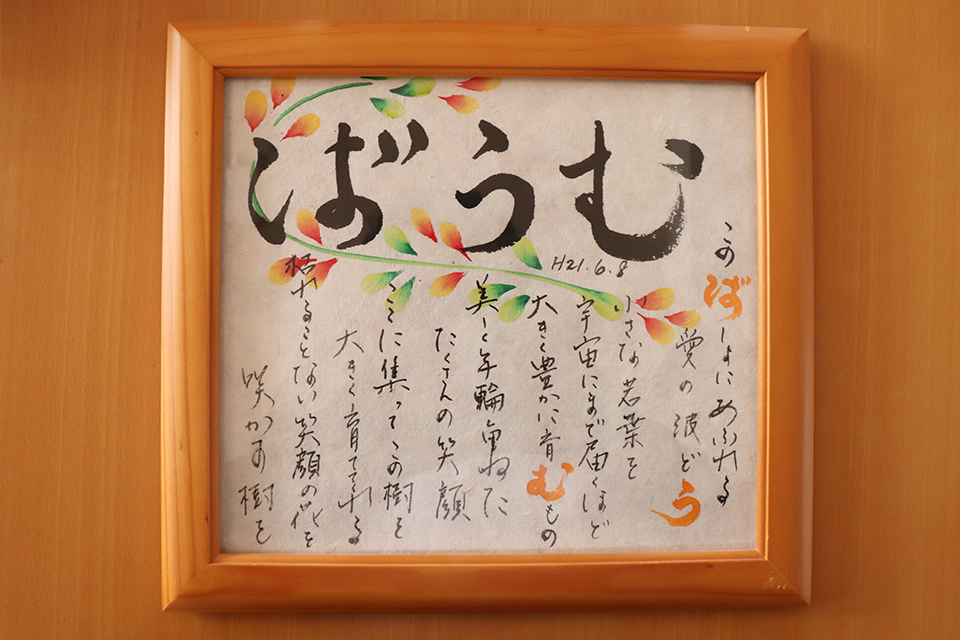 ばうむ
H21.6.8
このばしょにあふれる
愛の波どう
小さな若葉を
宇宙にまで届くほど
大きく豊かに育むもの
美しく年輪重ねた
たくさんの笑顔
ここに集ってこの樹を
大きく育ててくれる
枯れることない笑顔の花を
咲かす樹を